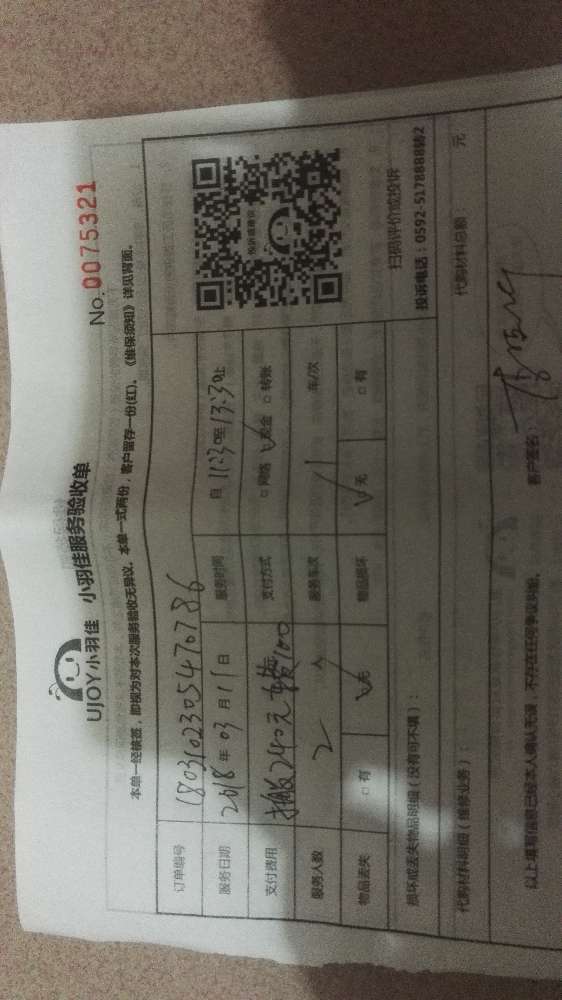 UJOY小羽佳 小羽佳服务验收单
No.0075321
本单一经核签，即视为对本次服务验收无异议。本单一式两份，客户留存一份(红)。《维保须知》详见背面。
订单编号 1803102305470786
服务日期 2018年03月11日 服务时间 自11:30至13:30止
支付费用 搬运240元 车费100 支付方式 □网络 ☑现金 □转账
服务人数 2人 服务车次 1 车/次
物品丢失 □有 ☑无 物品损坏 ☑无 □有
扫码评价或投诉
投诉电话：0592-5178888转2
损坏或丢失物品明细（没有可不填）：
代购材料明细（维修业务）： 代购材料总额： 元
以上填写信息已经本人确认无误，不存在任何争议纠纷。 客户签名：